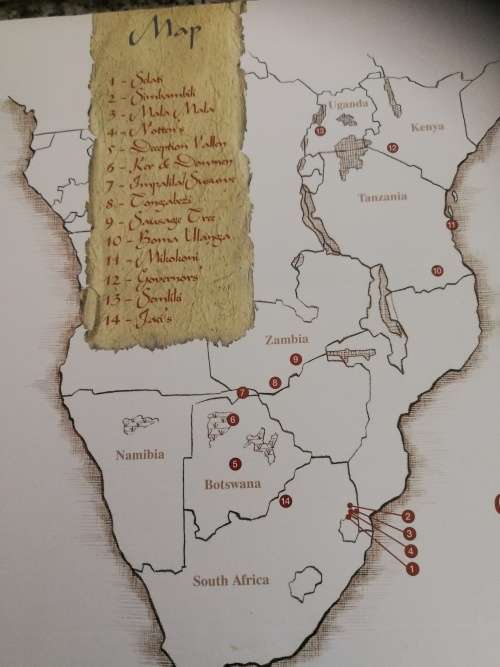 Map
1 - Selati
2 - Simbambili
3 - Mala Mala
4 - Notten's
5 - Deception Valley
6 - Ker & Downey
7 - Impalila/Susuwe
8 - Tongabezi
9 - Sausage Tree
10 - Boma Ulanga
11 - Mikokoni
12 - Governors'
13 - Semliki
14 - Jaci's
Uganda
Kenya
13
12
Tanzania
11
10
Zambia
9
8
7
6
Namibia
5
Botswana
14
2
3
4
1
South Africa